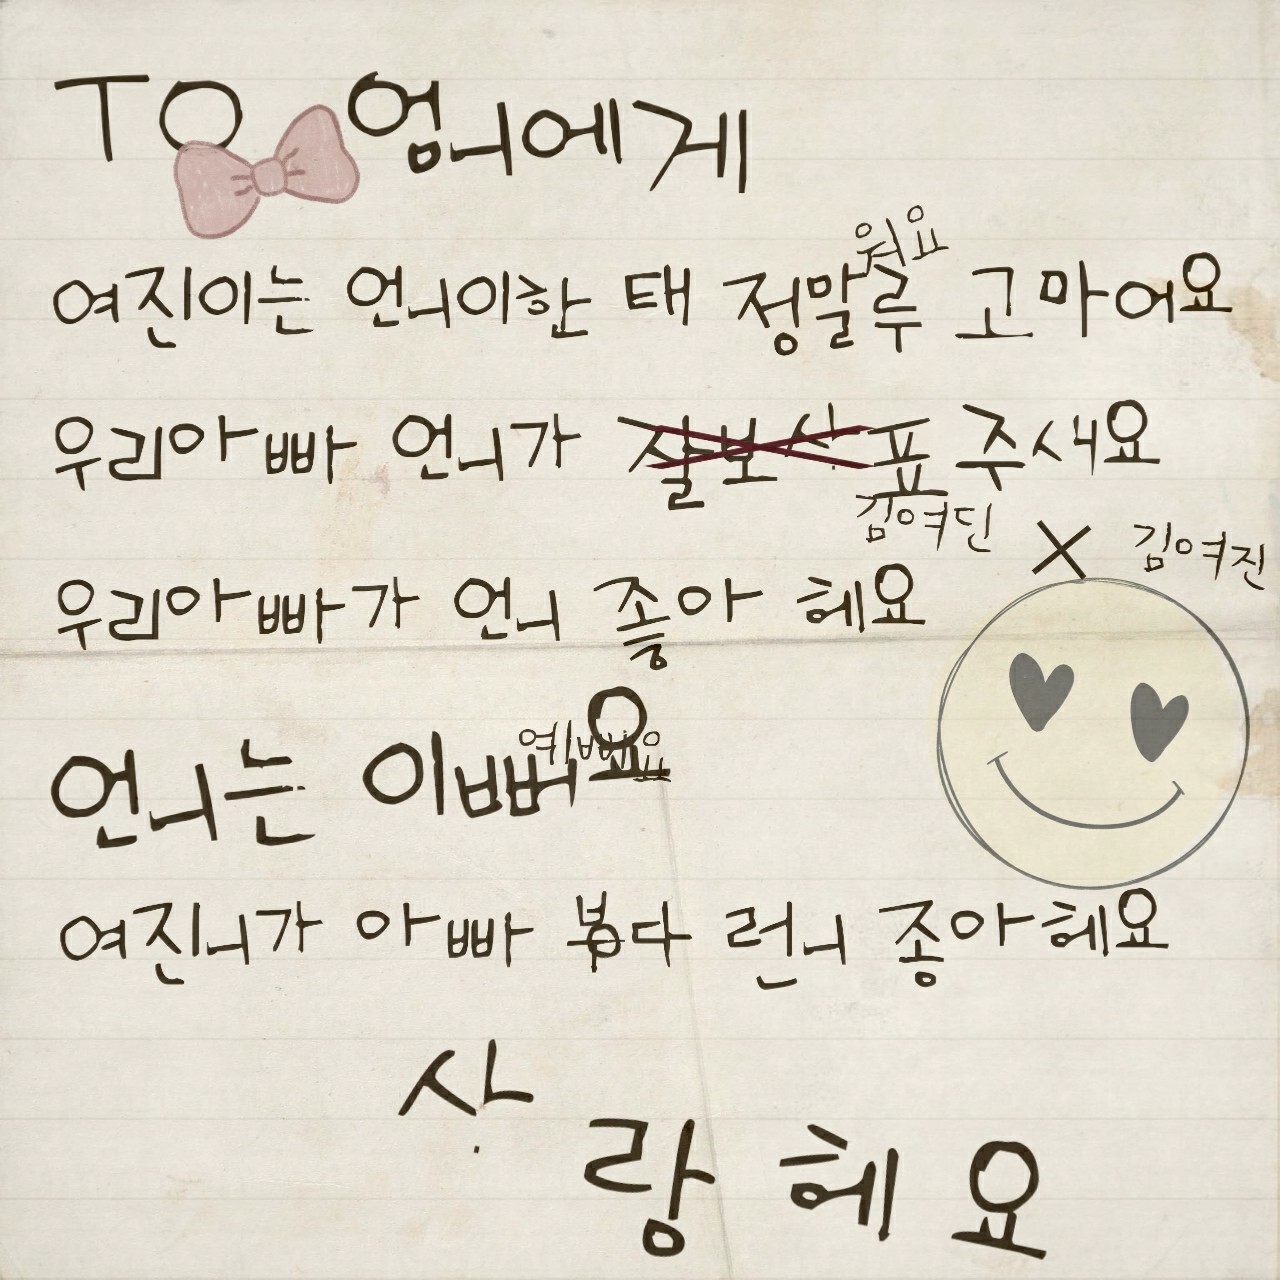 TO 엄니에게
워요
여진이는 언니이한 태 정말루 고마어요
우리아빠 언니가 잘보살표 주새요
김여딘 X 김여진
우리아빠가 언니 좋아 혜요
언니는 이뻐요
예뻐요
여진니가 아빠 봄다 런니 종아혜요
사
랑 혜 요